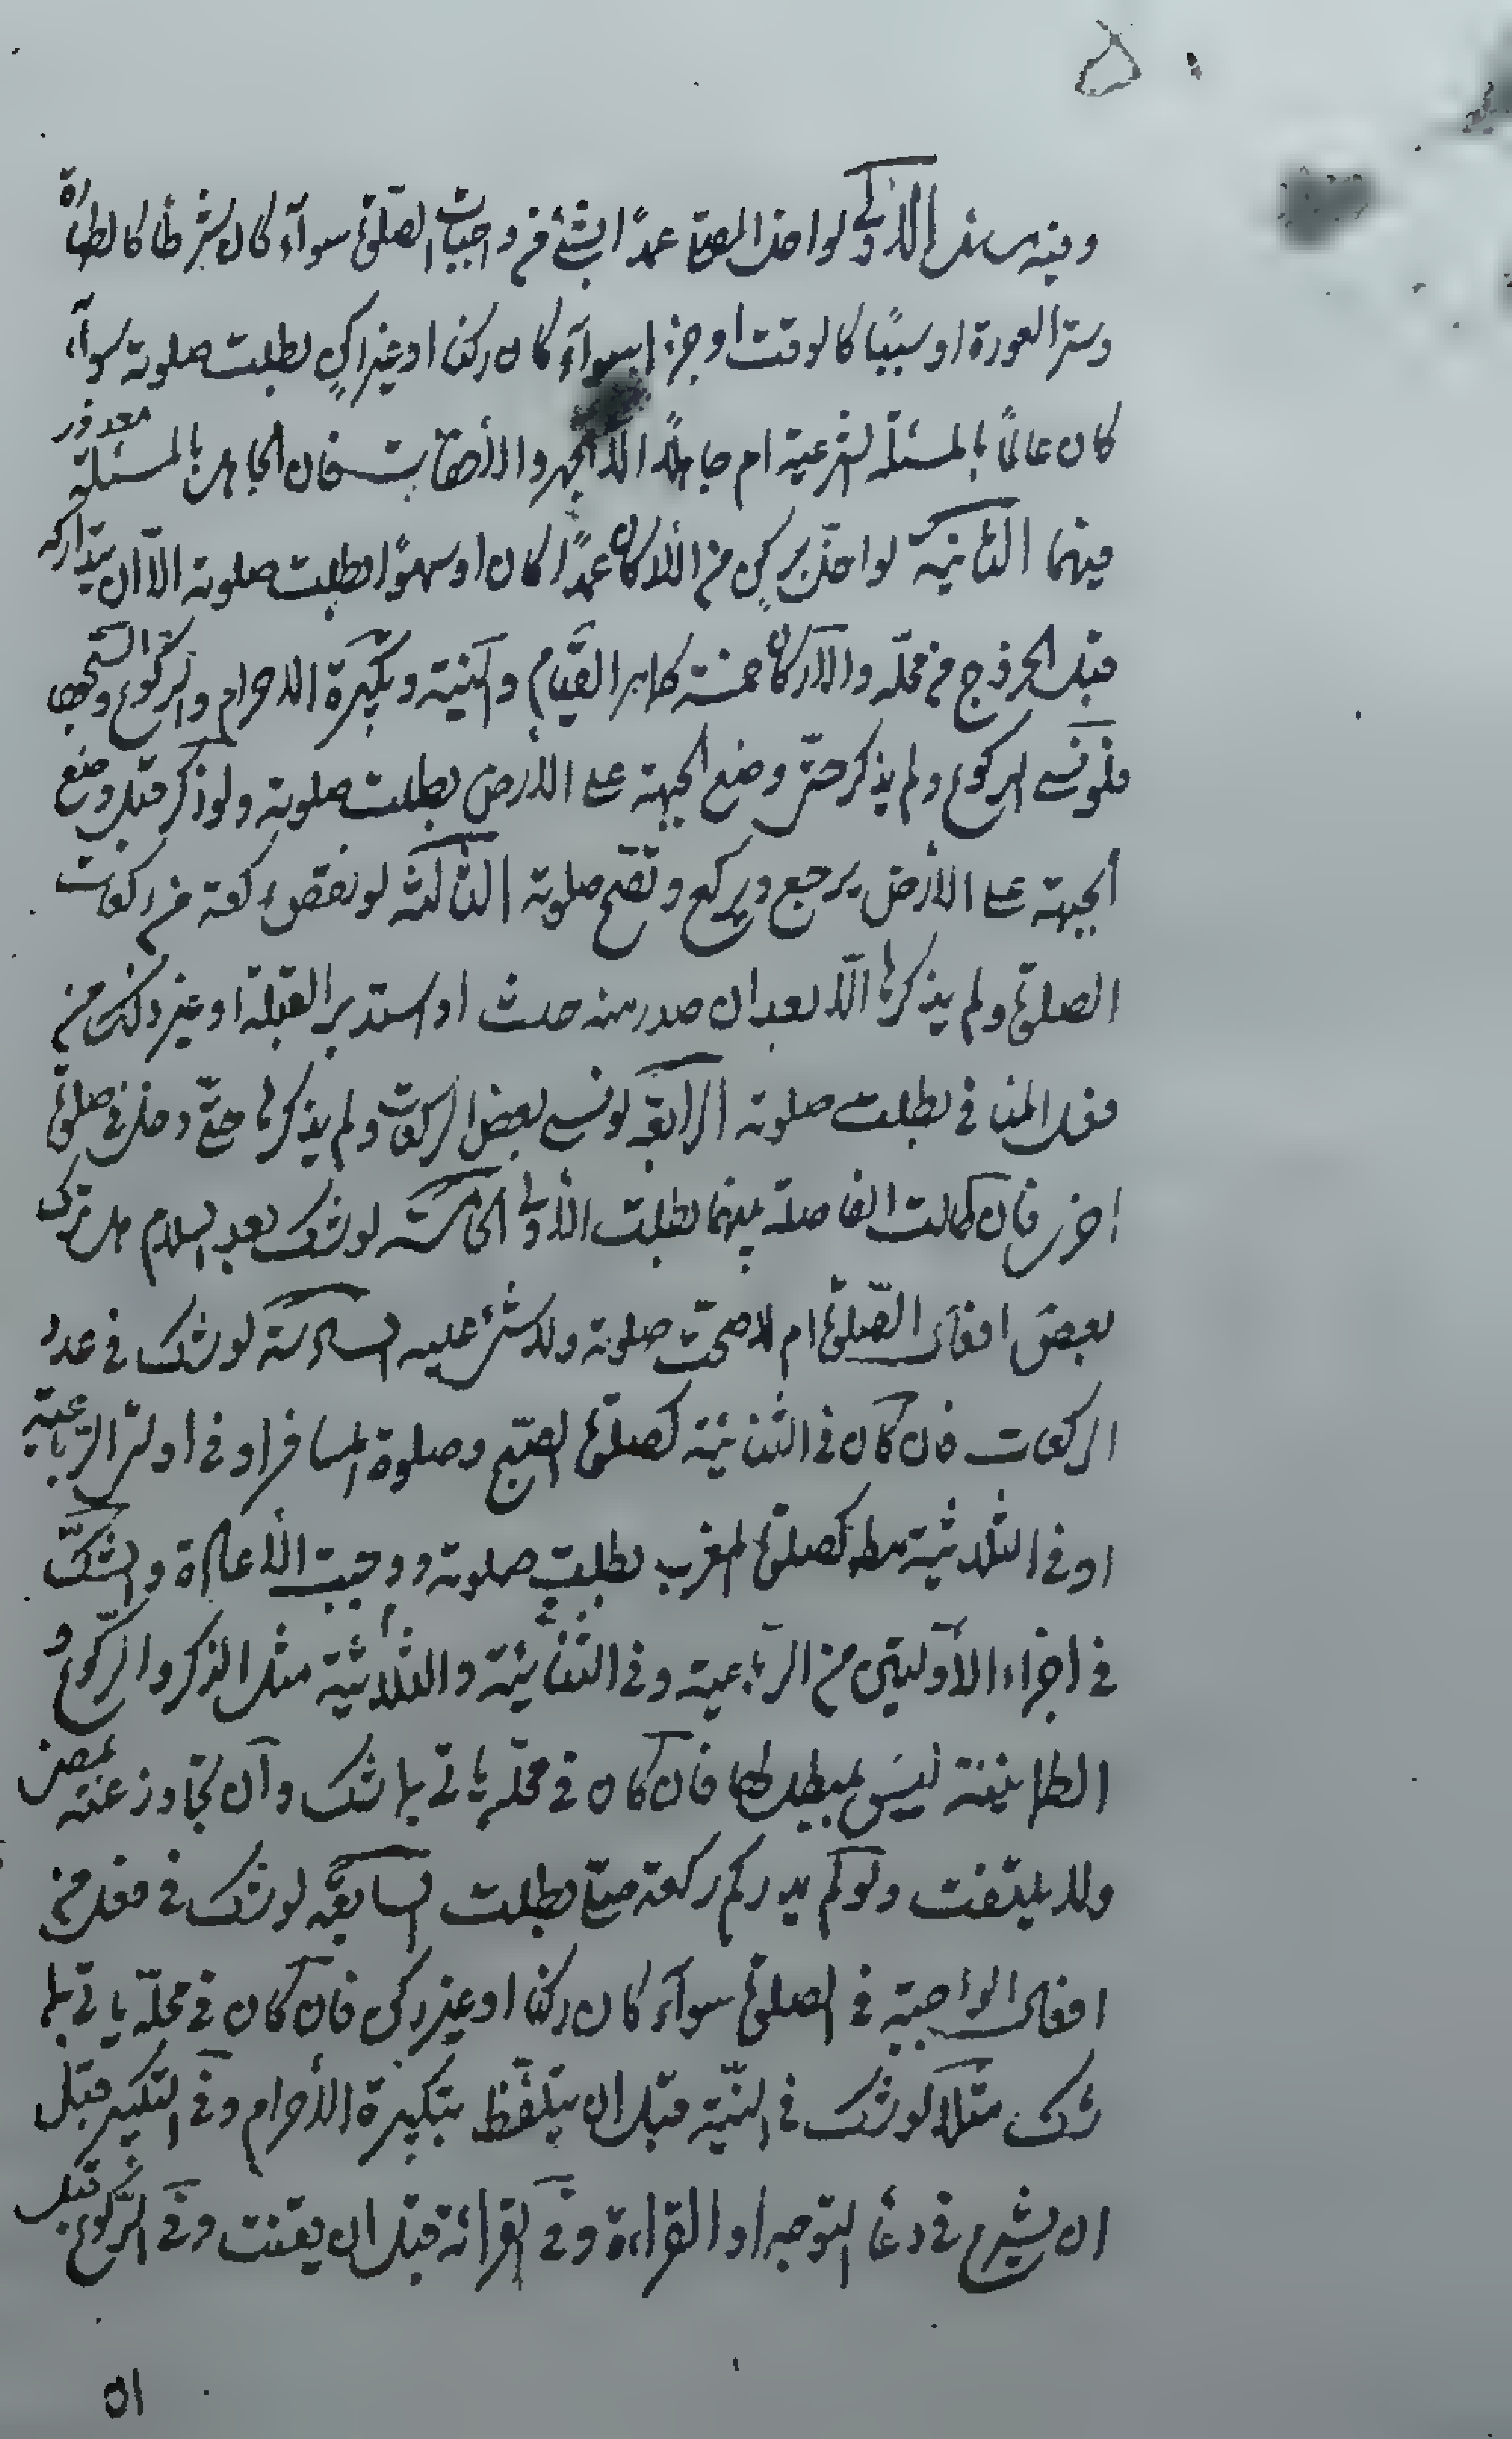 وفيه مسائل الاولى لو اخل المصلى عمدًا بشئ من واجبات الصلوة سوآء كان شرطًا كالطهارة
وستر العورة او سببًا كالوقت او جزءا سوآء كان ركنا او غير ركن بطلت صلوته سوآء
كان عالمًا بالمسئلة الشرعية ام جاهلًا الا الجهر والأخفات فان الجاهل بالمسئلة معذور
فيهما الثانية لو اخل بركن من الأركان عمدًا كان او سهوًا بطلت صلوته الا ان يتداركه
قبل الخروج من محلّه والاركان خمسة القيام والنية وتكبيرة الاحرام والركوع والسجود
فلو نسى الركوع ولم يذكر حتى وضع الجبهة على الأرض بطلت صلوته ولو ذكر قبل وضع
الجبهة على الأرض يرجع ويركع وتصح صلوته الثالثة لو نقص ركعة من ركعات
الصلوة ولم يذكرها الّا بعد ان صدر منه حدث او استدبر القبلة او غير ذلك من
فعل المنافى بطلت صلوته الرابعة لو نسى بعض الركعات ولم يذكرها حتى دخل فى صلوة
اخرى فان طالت الفاصلة بينهما بطلت الأولى الخامسة لو شك بعد السلام هل ترك
بعض افعال الصلوة ام لا صحت صلوته ولا شئ عليه السادسة لو شك فى عدد
الركعات فان كان فى الثنائية كصلوة الصبح وصلوة المسافر او فى اولتى الرباعية
او فى الثلاثية كصلوة المغرب بطلت صلوته ووجبت الأعادة والشك
فى اجزاء الأوليتين من الرباعية وفى الثنائية والثلاثية مثل الذكر والركوع و
الطمانينة ليس بمبطل لها فان كان فى محلّه يأتى بما شك وان تجاوز عنه يمضى
ولا يلتفت ولو لم يدر كم ركعة صلى بطلت السابعة لو شك فى فعل من
افعال الواجبة فى الصلوة سوآء كان ركنا او غير ركن فان كان فى محلّه يأتى بما
شك مثلا لو شك فى النيّة قبل ان يتلفّظ بتكبيرة الأحرام وفى التكبير قبل
ان يشرع فى دعآ التوجه او القراءة وفى القرائة قبل ان يقنت وفى الركوع قبل
٥١